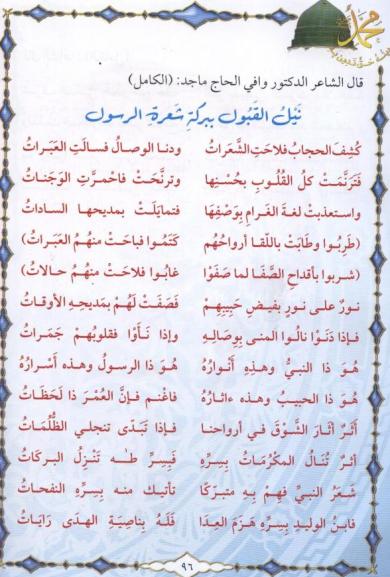 محمد
قال الشاعر الدكتور وافي الحاج ماجد: (الكامل)
نَيْلُ القَبُول بِبركَةِ شَعرةِ الرسول
كُشِفَ الحجابُ فلاحَتِ الشَّعَراتُ ودنا الوصالُ فسالَتِ العَبَراتُ
فَتَرَنَّمَتْ كلُّ القُلوبِ بِحُسْنِها وترنَّحَتْ فاحْمرَّتِ الوَجَناتُ
واستعذبتْ لغةَ الغَرامِ بِوَصْفِها فتمايَلَتْ بمديحِها الساداتُ
(طَرِبُوا وطَابَتْ باللّقا أرواحُهُم كَتَمُوا فباحَتْ منهُمُ العبَراتُ)
(شربوا بأقداحِ الصَّفا لما صَفَوْا غابُوا فلاحَتْ منهُمُ حالاتُ)
نورٌ على نورٍ بفيضِ حَبِيبِهِمْ فَصَفَتْ لَهُمْ بمديحِهِ الأوقاتُ
فإذا دَنَوْا نالُوا المنى بِوِصالِهِ وإذا نَأَوْا فقلوبُهُمْ جَمَراتُ
هُوَ ذا النبيُّ وهذِهِ أَنْوارُهُ هُوَ ذا الرسولُ وهذه أَسْرارُهُ
هُوَ ذا الحبيبُ وهذه ءاثارُهُ فاغْنم فإنَّ العُمْرَ ذا لَحَظَاتُ
أَثَرٌ أثارَ الشَّوْقَ في أرواحنا فإذا تَبَدَّى تنجلي الظُّلُمَاتُ
أثرٌ تُنَالُ المكْرُمَاتُ بِسِرِّهِ فَبِسِرِّ طــه تَنْزِلُ البركَاتُ
شَعَرُ النبيِّ فهِمْ بِهِ متبرِّكًا تأتيكَ منه بِسِرِّهِ النفحاتُ
فابنُ الوليدِ بِسِرِّهِ هَزَمَ العِدَا فَلَهُ بِناصِيَةِ الهدى رَايَاتُ
٩٦